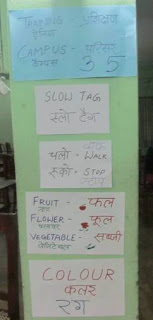 TRAINING प्रशिक्षण
ट्रेनिंग
CAMPUS - परिसर
कैम्पस 35
SLOW TAG
स्लो टैग
वाक
चलो - WALK
रूको - STOP
स्टाप
FRUIT - फल
FLOWER - फूल
फ्लावर
VEGETABLE - सब्जी
वेजिटेबल
COLOUR
कलर
रंग